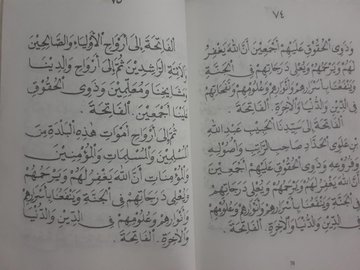 ٧٤
وَذَوِى الْحُقُوقِ عَلَيْهِمْ أَجْمَعِينَ أَنَّ اللهَ يَغْفِرُ
لَهُمْ وَيَرْحَمُهُمْ وَيُعْلِى دَرَجَاتِهِمْ فِى الْجَنَّةِ
وَيَنْفَعُنَا بِأَسْرَارِهِمْ وَأَنْوَارِهِمْ وَعُلُومِهِمْ وَنَفَحَاتِهِمْ
فِى الدِّينِ وَالدُّنْيَا وَالْآخِرَةِ. اَلْفَاتِحَةَ
اَلْفَاتِحَةَ إِلَى سَيِّدِنَا الْحَبِيبِ عَبْدِ اللهِ
بْنِ عَلَوِى الْحَدَّادِ صَاحِبِ الرَّاتِبِ وَأُصُولِهِ
وَفُرُوعِهِ وَذَوِى الْحُقُوقِ عَلَيْهِمْ أَجْمَعِينَ
أَنَّ اللهَ يَغْفِرُ لَهُمْ وَيَرْحَمُهُمْ وَيُعْلِى دَرَجَاتِهِمْ
فِى الْجَنَّةِ وَيَنْفَعُنَا بِأَسْرَارِهِمْ وَأَنْوَارِهِمْ وَعُلُومِهِمْ
فِى الدِّينِ وَالدُّنْيَا وَالْآخِرَةِ. اَلْفَاتِحَةَ
٧٥
اَلْفَاتِحَةَ إِلَى أَرْوَاحِ الْأَوْلِيَاءِ وَالصَّالِحِينَ
وَالْأَئِمَّةِ الرَّاشِدِينَ ثُمَّ إِلَى أَرْوَاحِ وَالِدِينَا
وَمَشَايِخِنَا وَمُعَلِّمِينَا وَذَوِى الْحُقُوقِ
عَلَيْنَا أَجْمَعِينَ. اَلْفَاتِحَةَ.
ثُمَّ إِلَى أَرْوَاحِ أَمْوَاتِ هَذِهِ الْبَلْدَةِ مِنَ
الْمُسْلِمِينَ وَالْمُسْلِمَاتِ وَالْمُؤْمِنِينَ
وَالْمُؤْمِنَاتِ أَنَّ اللهَ يَغْفِرُ لَهُمْ وَيَرْحَمُهُمْ
وَيُعْلِى دَرَجَاتِهِمْ فِى الْجَنَّةِ وَيَنْفَعُنَا بِأَسْرَارِهِمْ
وَأَنْوَارِهِمْ وَعُلُومِهِمْ فِى الدِّينِ وَالدُّنْيَا
وَالْآخِرَةِ. اَلْفَاتِحَةَ